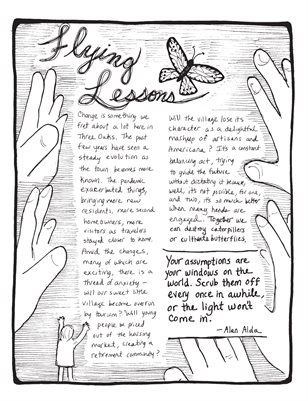 Flying
Lessons
Change is something we
fret about a lot here in
Three Oaks. The past
few years have seen a
steady evolution as
the town becomes more
known. The pandemic
exacerbated things,
bringing more new
residents, more second
homeowners, more
visitors as travelers
stayed closer to home.
Amid the changes,
many of which are
exciting, there is a
thread of anxiety –
will our sweet little
village become overrun
by tourism? Will young
people be priced
out of the housing
market, creating a
retirement community?
Will the village lose its
character as a delightful
mashup of artisans and
Americana? It's a constant
balancing act, trying
to guide the future
without dictating it because,
well, it's not possible, for one,
and two, it's so much better
when many hands are
engaged. Together we
can destroy caterpillars
or cultivate butterflies.
Your assumptions are
your windows on the
world. Scrub them off
every once in awhile,
or the light won't
come in.
– Alan Alda